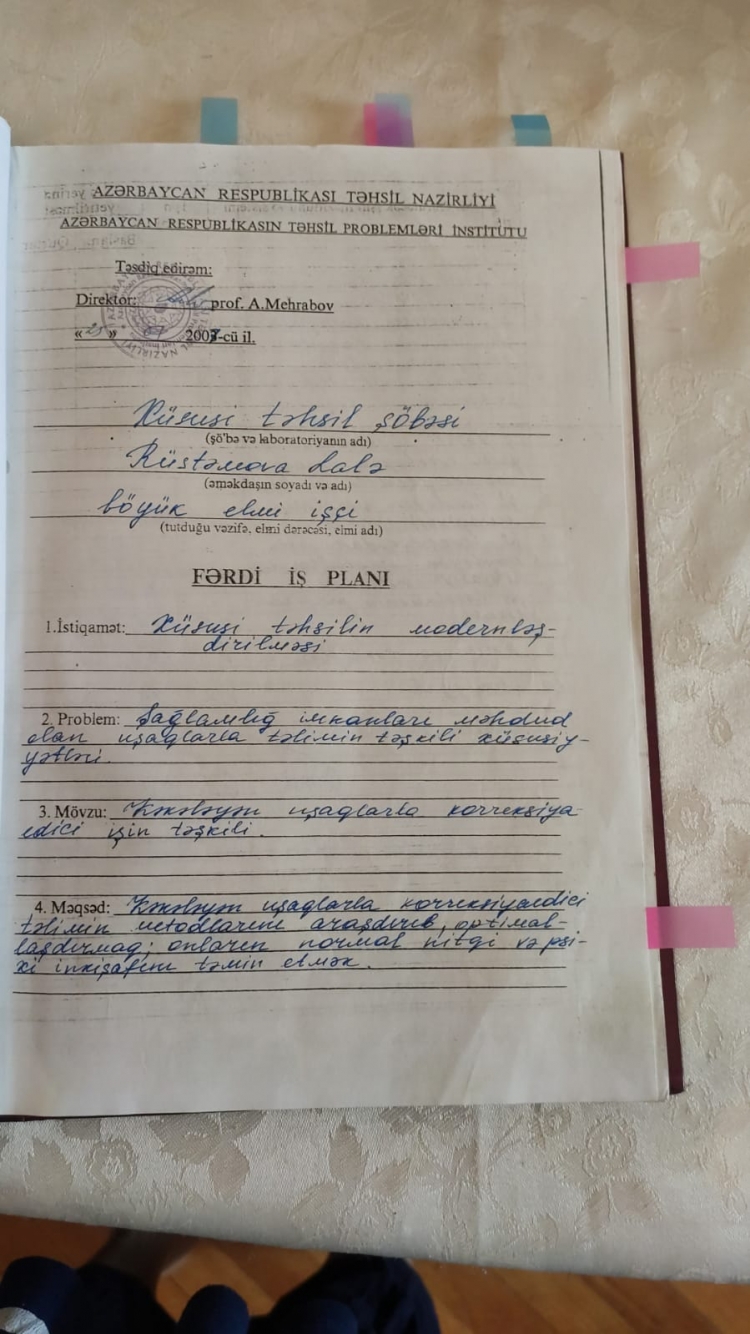 AZƏRBAYCAN RESPUBLİKASI TƏHSİL NAZİRLİYİ
AZƏRBAYCAN RESPUBLİKASIN TƏHSİL PROBLEMLƏRİ İNSTİTUTU
Təsdiq edirəm:
Direktor: prof. A.Mehrabov
« 25 » 07 2007-cü il.
Xüsusi təhsil şöbəsi
(şö'bə və laboratoriyanın adı)
Rüstəmova Lalə
(əməkdaşın soyadı və adı)
böyük elmi işçi
(tutduğu vəzifə, elmi dərəcəsi, elmi adı)
FƏRDİ İŞ PLANI
1.İstiqamət: Xüsusi təhsilin modernləş-
dirilməsi
2. Problem: Sağlamlığ imkanları məhdud
olan uşaqlarla təlimin təşkili xüsusiy-
yətləri.
3. Mövzu: Kəkələyən uşaqlarla korreksiya
edici işin təşkili.
4. Məqsəd: Kəkələyən uşaqlarla korreksiyaedici
təlimin metodlarını araşdırıb, optimal-
laşdırmaq; onların normal nitqi və psi-
xi inkişafını təmin etmək.